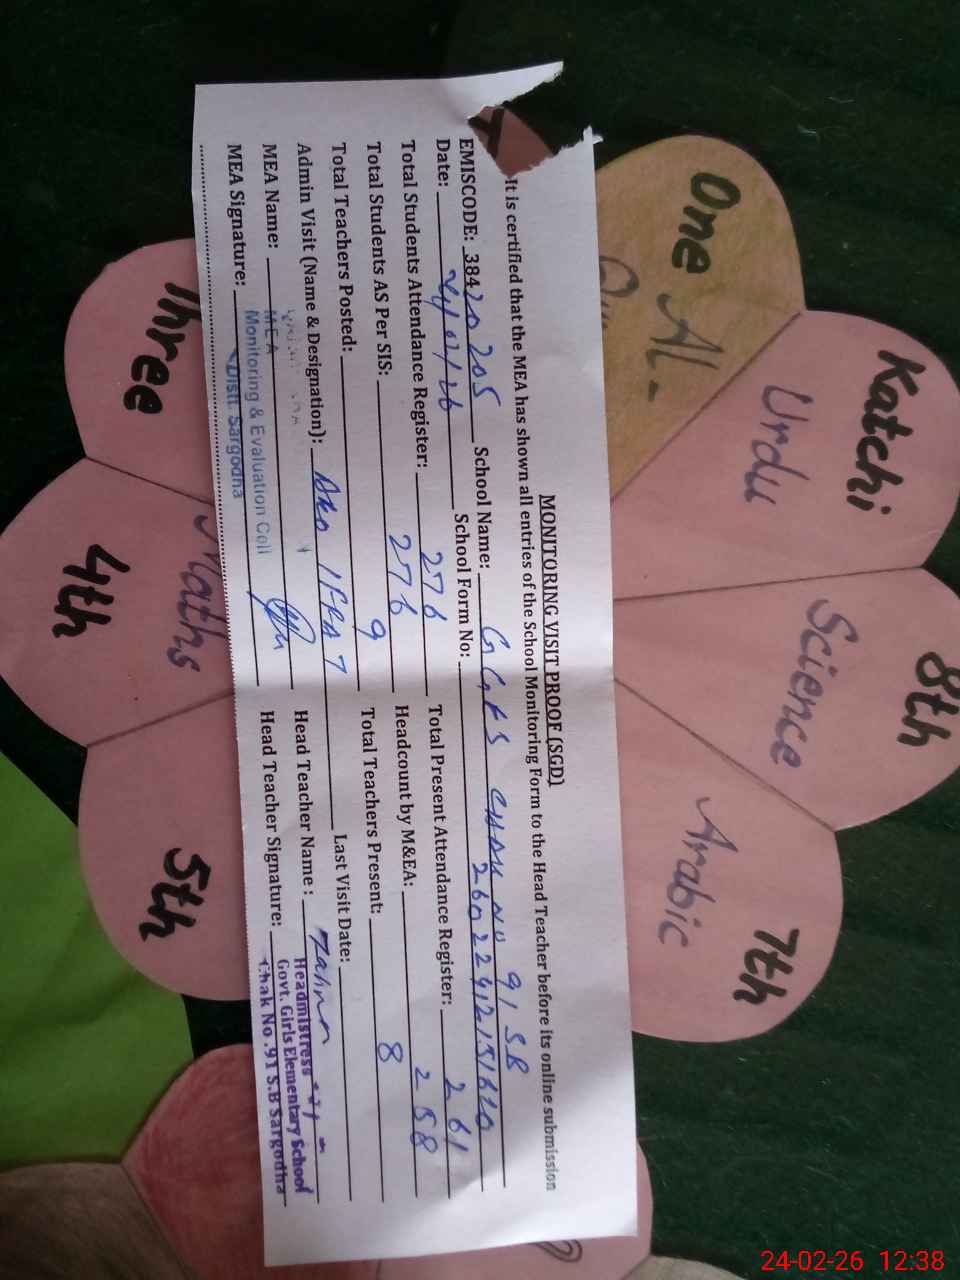 MONITORING VISIT PROOF (SGD)
It is certified that the MEA has shown all entries of the School Monitoring Form to the Head Teacher before its online submission
EMISCODE: 38420205 School Name: GGES CHAK NO 91 SB
Date: 24/02/26 School Form No:
Total Students Attendance Register: 276 Total Present Attendance Register: 261
Total Students AS Per SIS: 276 Headcount by M&EA: 258
Total Teachers Posted: 9 Total Teachers Present: 8
Admin Visit (Name & Designation): Last Visit Date:
MEA Name: Head Teacher Name:
MEA Signature: Head Teacher Signature:
MEA
Monitoring & Evaluation Cell
Distt. Sargodha
Headmistress
Govt. Girls Elementary School
Chak No.91 S.B Sargodha
One
Al-
Katchi
Urdu
8th
Science
7th
Arabic
Three
4th
Maths
5th
24-02-26 12:38